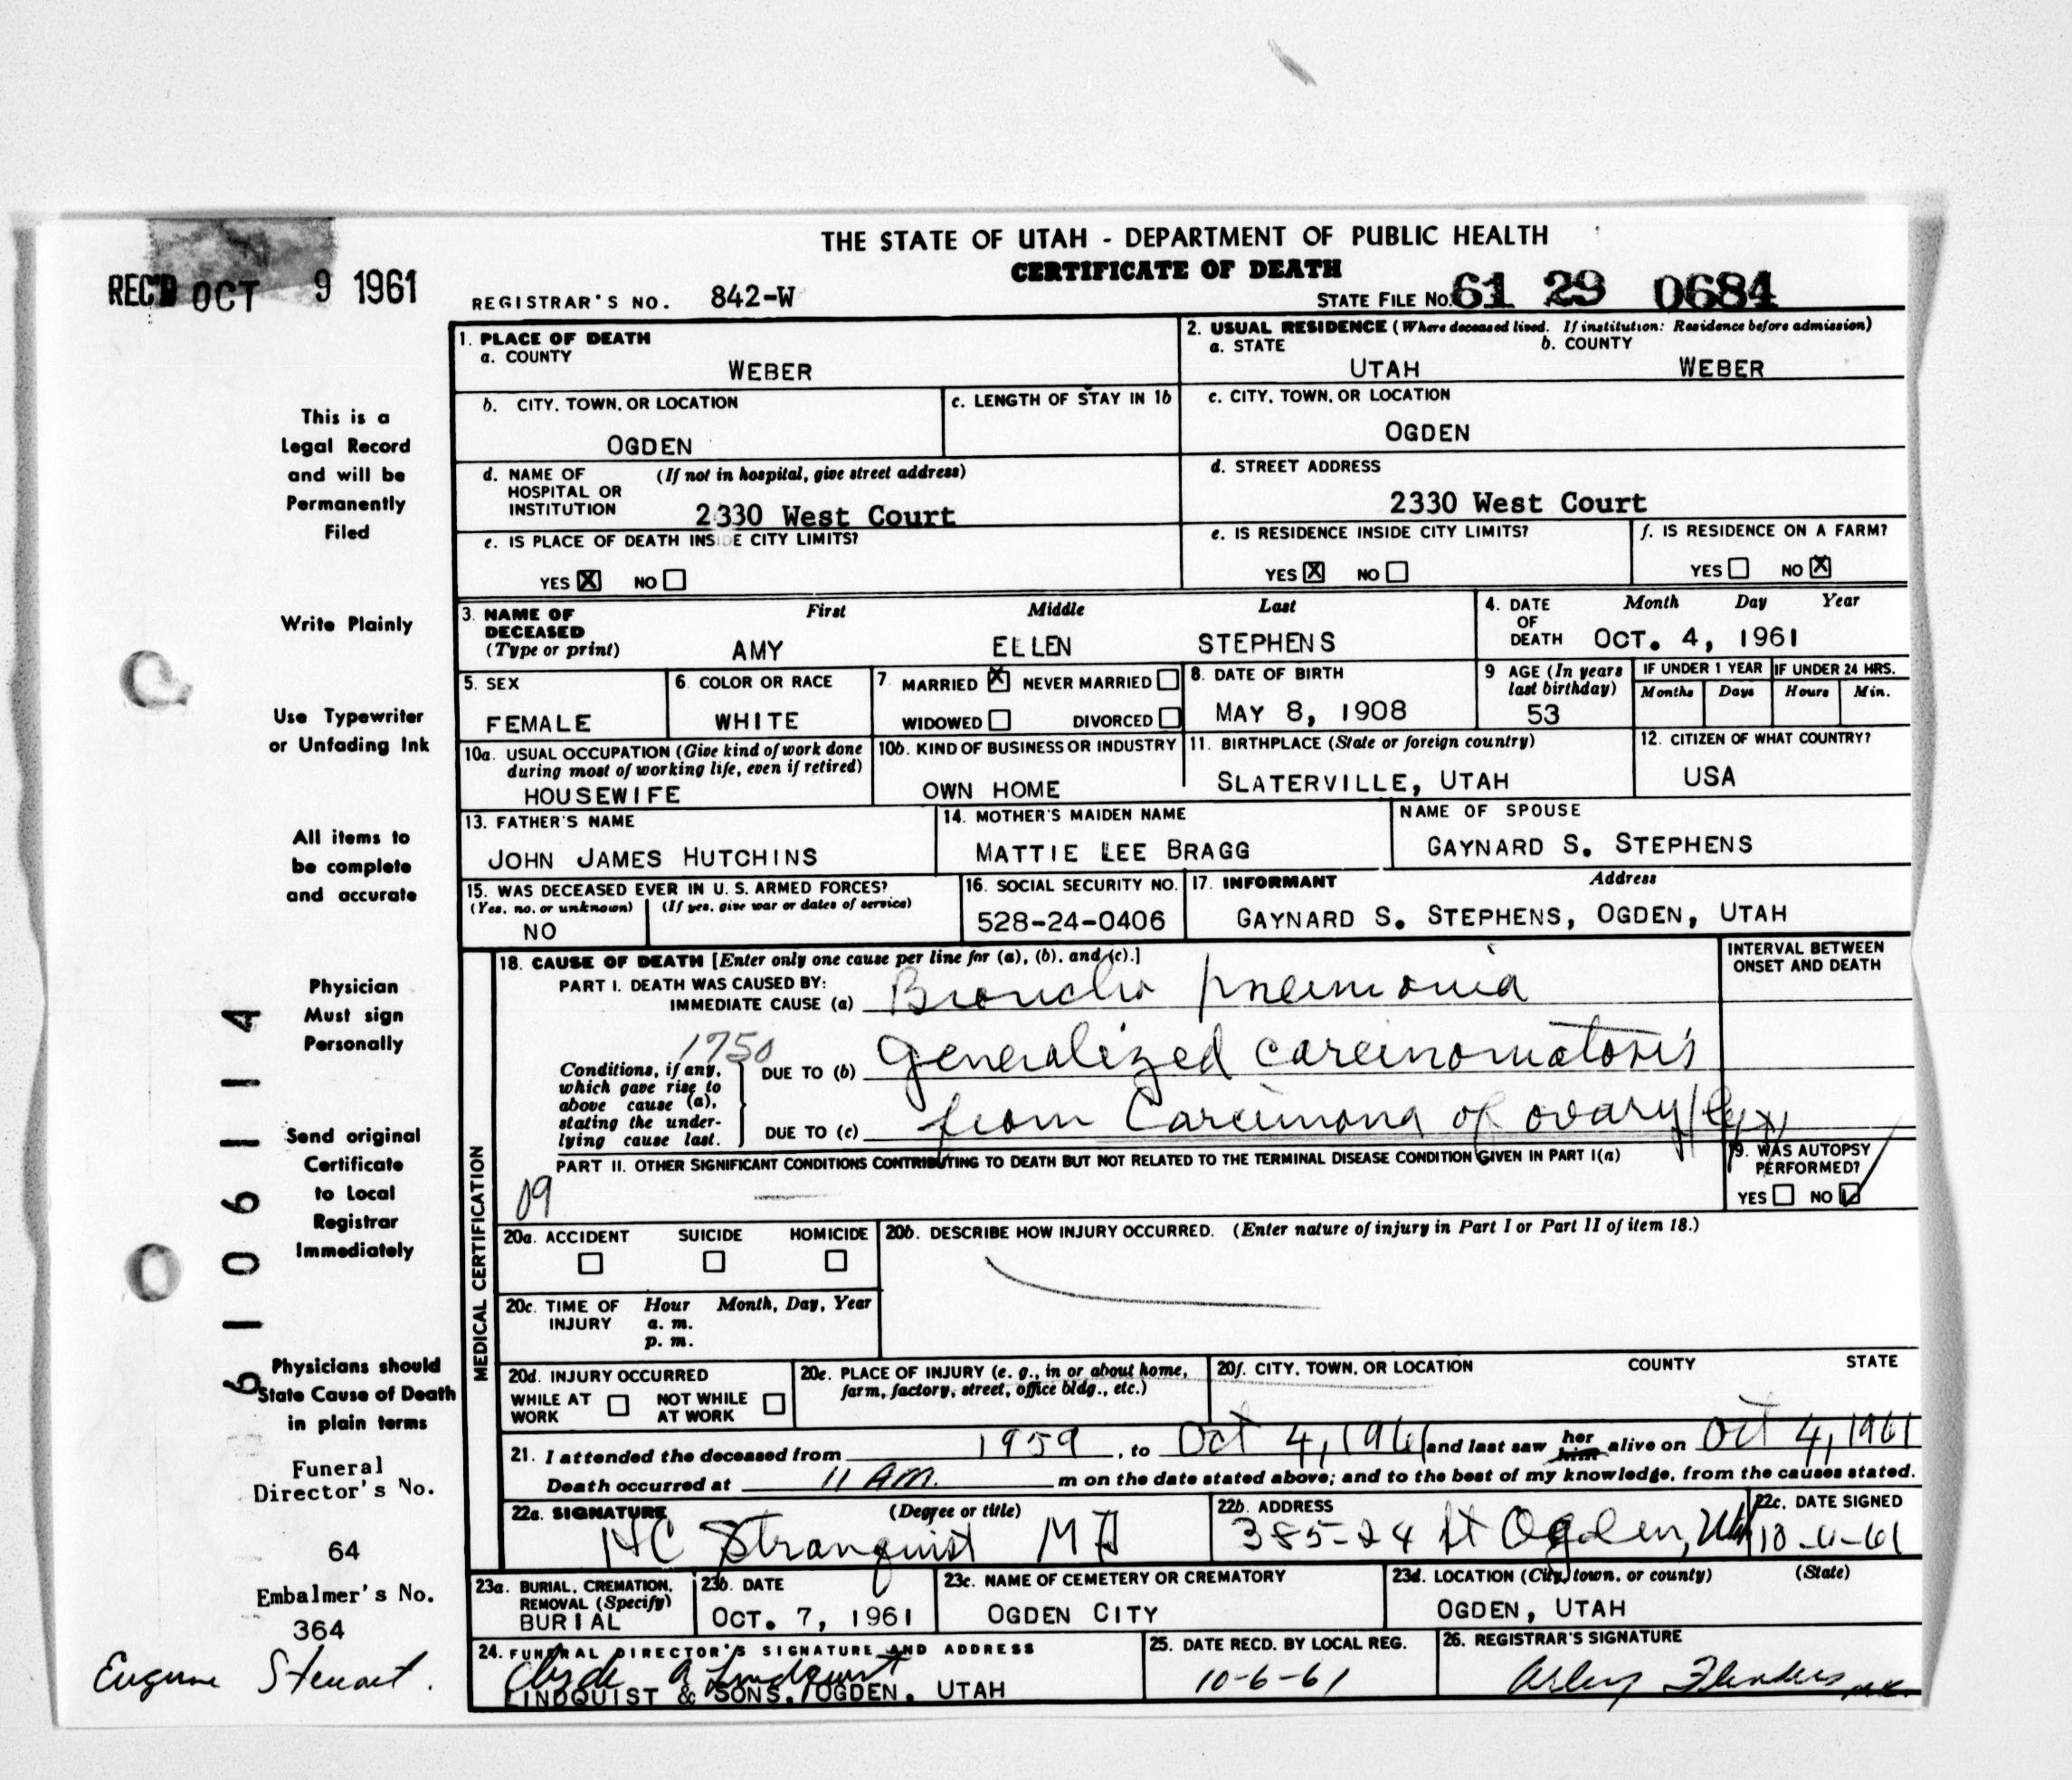 THE STATE OF UTAH - DEPARTMENT OF PUBLIC HEALTH
CERTIFICATE OF DEATH
REC'D OCT 9 1961
REGISTRAR'S NO. 842-W
STATE FILE NO. 61 29 0684
1. PLACE OF DEATH
a. COUNTY
WEBER
2. USUAL RESIDENCE (Where deceased lived. If institution: Residence before admission)
a. STATE b. COUNTY
UTAH WEBER
b. CITY, TOWN, OR LOCATION
OGDEN
c. LENGTH OF STAY IN 1b
c. CITY, TOWN, OR LOCATION
OGDEN
d. NAME OF HOSPITAL OR INSTITUTION (If not in hospital, give street address)
2330 West Court
d. STREET ADDRESS
2330 West Court
e. IS PLACE OF DEATH INSIDE CITY LIMITS?
YES X NO
e. IS RESIDENCE INSIDE CITY LIMITS?
YES X NO
f. IS RESIDENCE ON A FARM?
YES NO X
3. NAME OF DECEASED (Type or print)
First Middle Last
AMY ELLEN STEPHENS
4. DATE OF DEATH
Month Day Year
OCT. 4, 1961
5. SEX
FEMALE
6. COLOR OR RACE
WHITE
7. MARRIED X NEVER MARRIED
WIDOWED DIVORCED
8. DATE OF BIRTH
MAY 8, 1908
9 AGE (In years last birthday)
53
IF UNDER 1 YEAR IF UNDER 24 HRS.
Months Days Hours Min.
10a. USUAL OCCUPATION (Give kind of work done during most of working life, even if retired)
HOUSEWIFE
10b. KIND OF BUSINESS OR INDUSTRY
OWN HOME
11. BIRTHPLACE (State or foreign country)
SLATERVILLE, UTAH
12. CITIZEN OF WHAT COUNTRY?
USA
13. FATHER'S NAME
JOHN JAMES HUTCHINS
14. MOTHER'S MAIDEN NAME
MATTIE LEE BRAGG
NAME OF SPOUSE
GAYNARD S. STEPHENS
15. WAS DECEASED EVER IN U.S. ARMED FORCES?
(Yes, no, or unknown) (If yes, give war or dates of service)
NO
16. SOCIAL SECURITY NO.
528-24-0406
17. INFORMANT Address
GAYNARD S. STEPHENS, OGDEN, UTAH
MEDICAL CERTIFICATION
18. CAUSE OF DEATH [Enter only one cause per line for (a), (b), and (c).]
PART I. DEATH WAS CAUSED BY:
IMMEDIATE CAUSE (a) Broncho pneumonia
INTERVAL BETWEEN ONSET AND DEATH
1750
Conditions, if any, which gave rise to above cause (a), stating the underlying cause last.
DUE TO (b) Generalized carcinomatosis
DUE TO (c) from Carcinoma of ovary
PART II. OTHER SIGNIFICANT CONDITIONS CONTRIBUTING TO DEATH BUT NOT RELATED TO THE TERMINAL DISEASE CONDITION GIVEN IN PART I(a)
09
19. WAS AUTOPSY PERFORMED?
YES NO
20a. ACCIDENT SUICIDE HOMICIDE
20b. DESCRIBE HOW INJURY OCCURRED. (Enter nature of injury in Part I or Part II of item 18.)
20c. TIME OF INJURY Hour Month, Day, Year
a. m.
p. m.
20d. INJURY OCCURRED
WHILE AT WORK NOT WHILE AT WORK
20e. PLACE OF INJURY (e. g., in or about home, farm, factory, street, office bldg., etc.)
20f. CITY, TOWN, OR LOCATION COUNTY STATE
21. I attended the deceased from 1959, to Oct 4, 1961 and last saw her him alive on Oct 4, 1961
Death occurred at 11 A.M. m on the date stated above; and to the best of my knowledge, from the causes stated.
22a. SIGNATURE (Degree or title)
HC Stranquist MD
22b. ADDRESS
385-24 St Ogden, Utah
22c. DATE SIGNED
23a. BURIAL, CREMATION, REMOVAL (Specify)
BURIAL
23b. DATE
OCT. 7, 1961
23c. NAME OF CEMETERY OR CREMATORY
OGDEN CITY
23d. LOCATION (City, town, or county) (State)
OGDEN, UTAH
24. FUNERAL DIRECTOR'S SIGNATURE AND ADDRESS
Clyde A Lindquist
LINDQUIST & SONS, OGDEN, UTAH
25. DATE RECD. BY LOCAL REG.
10-6-61
26. REGISTRAR'S SIGNATURE
This is a
Legal Record
and will be
Permanently
Filed
Write Plainly
Use Typewriter
or Unfading Ink
All items to
be complete
and accurate
Physician
Must sign
Personally
Send original
Certificate
to Local
Registrar
Immediately
Physicians should
State Cause of Death
in plain terms
Funeral
Director's No.
64
Embalmer's No.
364
Eugene Stewart.
6 1 0 6 1 1 4